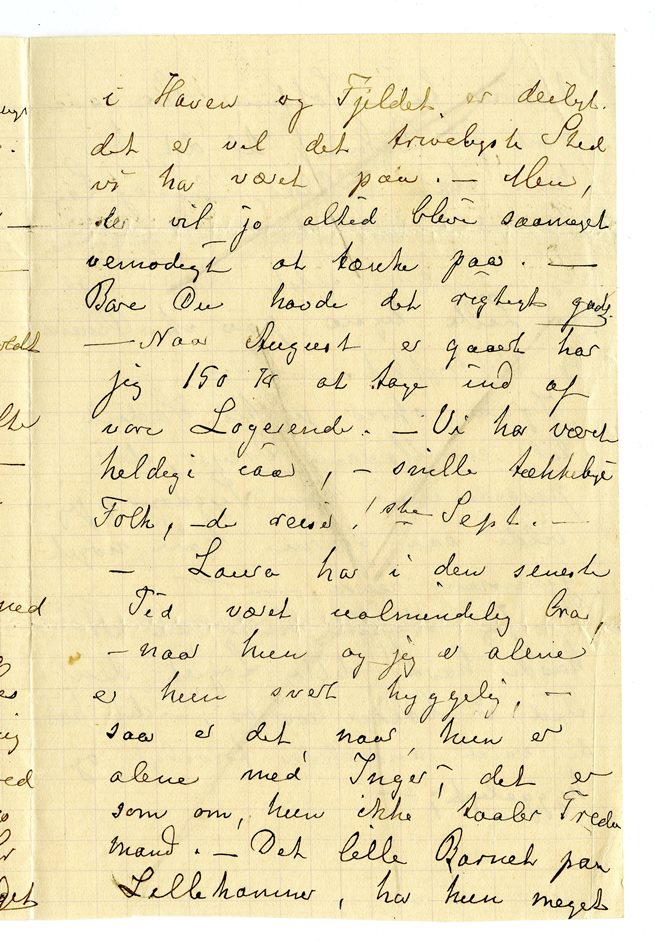 i Haven og Fjeldet er deiligt.
det er vel det triveligste Sted
vi ha været paa. – Men,
der vil jo altid blive saameget
vemodigt at tænke paa. –
Bare Du havde det rigtigt godt.
– Naar August er gaaet har
jeg 150 Kr at tage ind af
vore Logerende. – Vi ha været
heldige iaar, – snille tækkelige
Folk, – de reiser 1ste Sept. –
– Laura har i den seneste
Tid været ualmindelig bra,
– naar hun og jeg er alene
er hun svært hyggelig, –
saa er det, naar, hun er
alene med Inger, det er
som om, hun ikke taaler Tredie
mand. – Det lille Barnet paa
Lillehammer, har hun meget